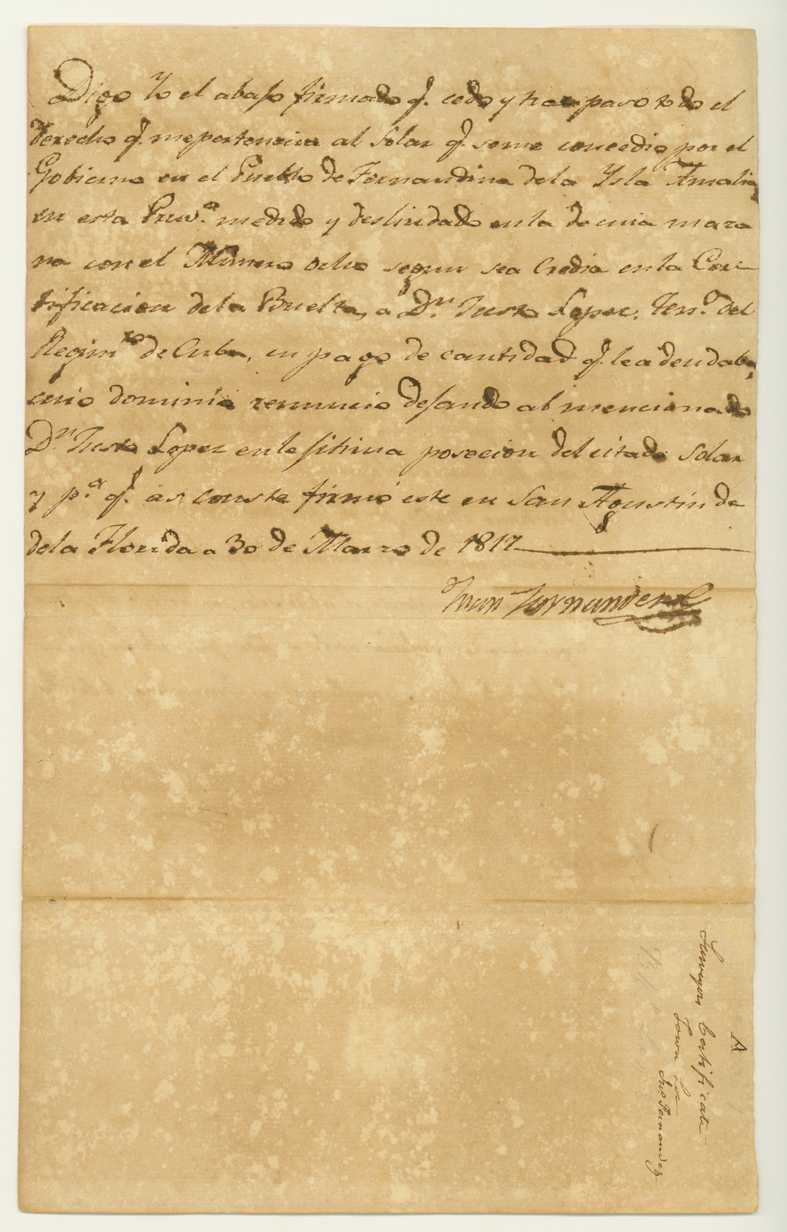 Digo Yo el abajo firmado q. cedo y traspaso todo el
derecho q. me pertenecia al solar q. seme concedio por el
Gobierno en el Pueblo de Fernandina dela Ysla Amalia,
en esta Prov.a medido y deslindado en la decima manza
na con el Numero ocho segun sea Credia en la Cer-
tificacion dela Buelta, a D.n Justo Lopez. Ten.te del
Regim.to de Cuba, en pago de cantidad q. le adeudaba,
cuio dominio renuncio dejando al mencionado
D.n Justo Lopez en lejitima poseción del citado solar
y p.a q. asi conste firmé este en San Agustin de
dela Florida a 30 de Marzo de 1817
Juan Fernandez
A
Surveyor Certificate
Town Lot
Jno Fernandez